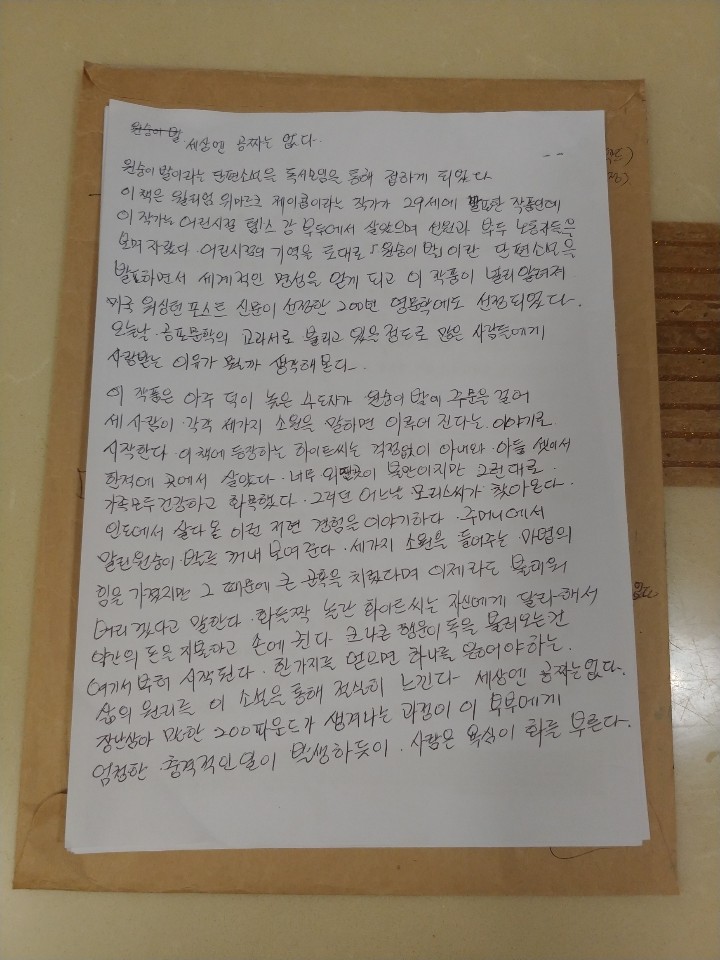 원숭이 발 세상엔 공짜는 없다.
원숭이 발이라는 단편소설을 독서모임을 통해 접하게 되었다
이 책은 윌리엄 위마르크 제이콥이라는 작가가 29세에 발표한 작품인데
이 작가는 어린시절 템스 강 부두에서 살았으며 선원과 부두 노동자들을
보며 자랐다. 어린시절의 기억을 토대로 「원숭이 발」이란 단편소설을
발표하면서 세계적인 명성을 얻게 되고 이 작품이 널리 알려져
미국 워싱턴 포스트 신문이 선정한 200번 영문학에도 선정되었다.
오늘날 공포문학의 교과서로 불리고 있을 정도로 많은 사람들에게
사랑받는 이유가 뭘까 생각해 본다.
이 작품은 아주 덕이 높은 수도자가 원숭이 발에 주문을 걸어
세 사람이 각각 세가지 소원을 말하면 이루어 진다는 이야기로
시작한다. 이 책에 등장하는 화이트씨는 걱정없이 아내와 아들 셋이서
한적에 곳에서 살았다. 너무 외딴곳이 불만이지만 그런대로
가족모두 건강하고 화목했다. 그러던 어느날 모리스씨가 찾아온다.
인도에서 살다 온 이런 저런 경험을 이야기하다 주머니에서
말린 원숭이 발을 꺼내 보여준다. 세가지 소원을 들어주는 마법의
힘을 가졌지만 그 때문에 큰 곤혹을 치렀다며 이제라도 불태워
버리겠다고 말한다. 화들짝 놀란 화이트씨는 자신에게 달라 해서
약간의 돈을 지불하고 손에 쥔다 크나큰 행운이 독을 불러오는건
여기서부터 시작된다. 한가지를 얻으면 하나를 잃어야 하는
삶의 원리를 이 소설을 통해 절실히 느낀다 세상엔 공짜는 없다.
장난삼아 말한 200파운드가 생겨나는 과정이 이 부부에게
엄청한 충격적인 일이 발생하듯이 사람은 욕심이 화를 부른다.